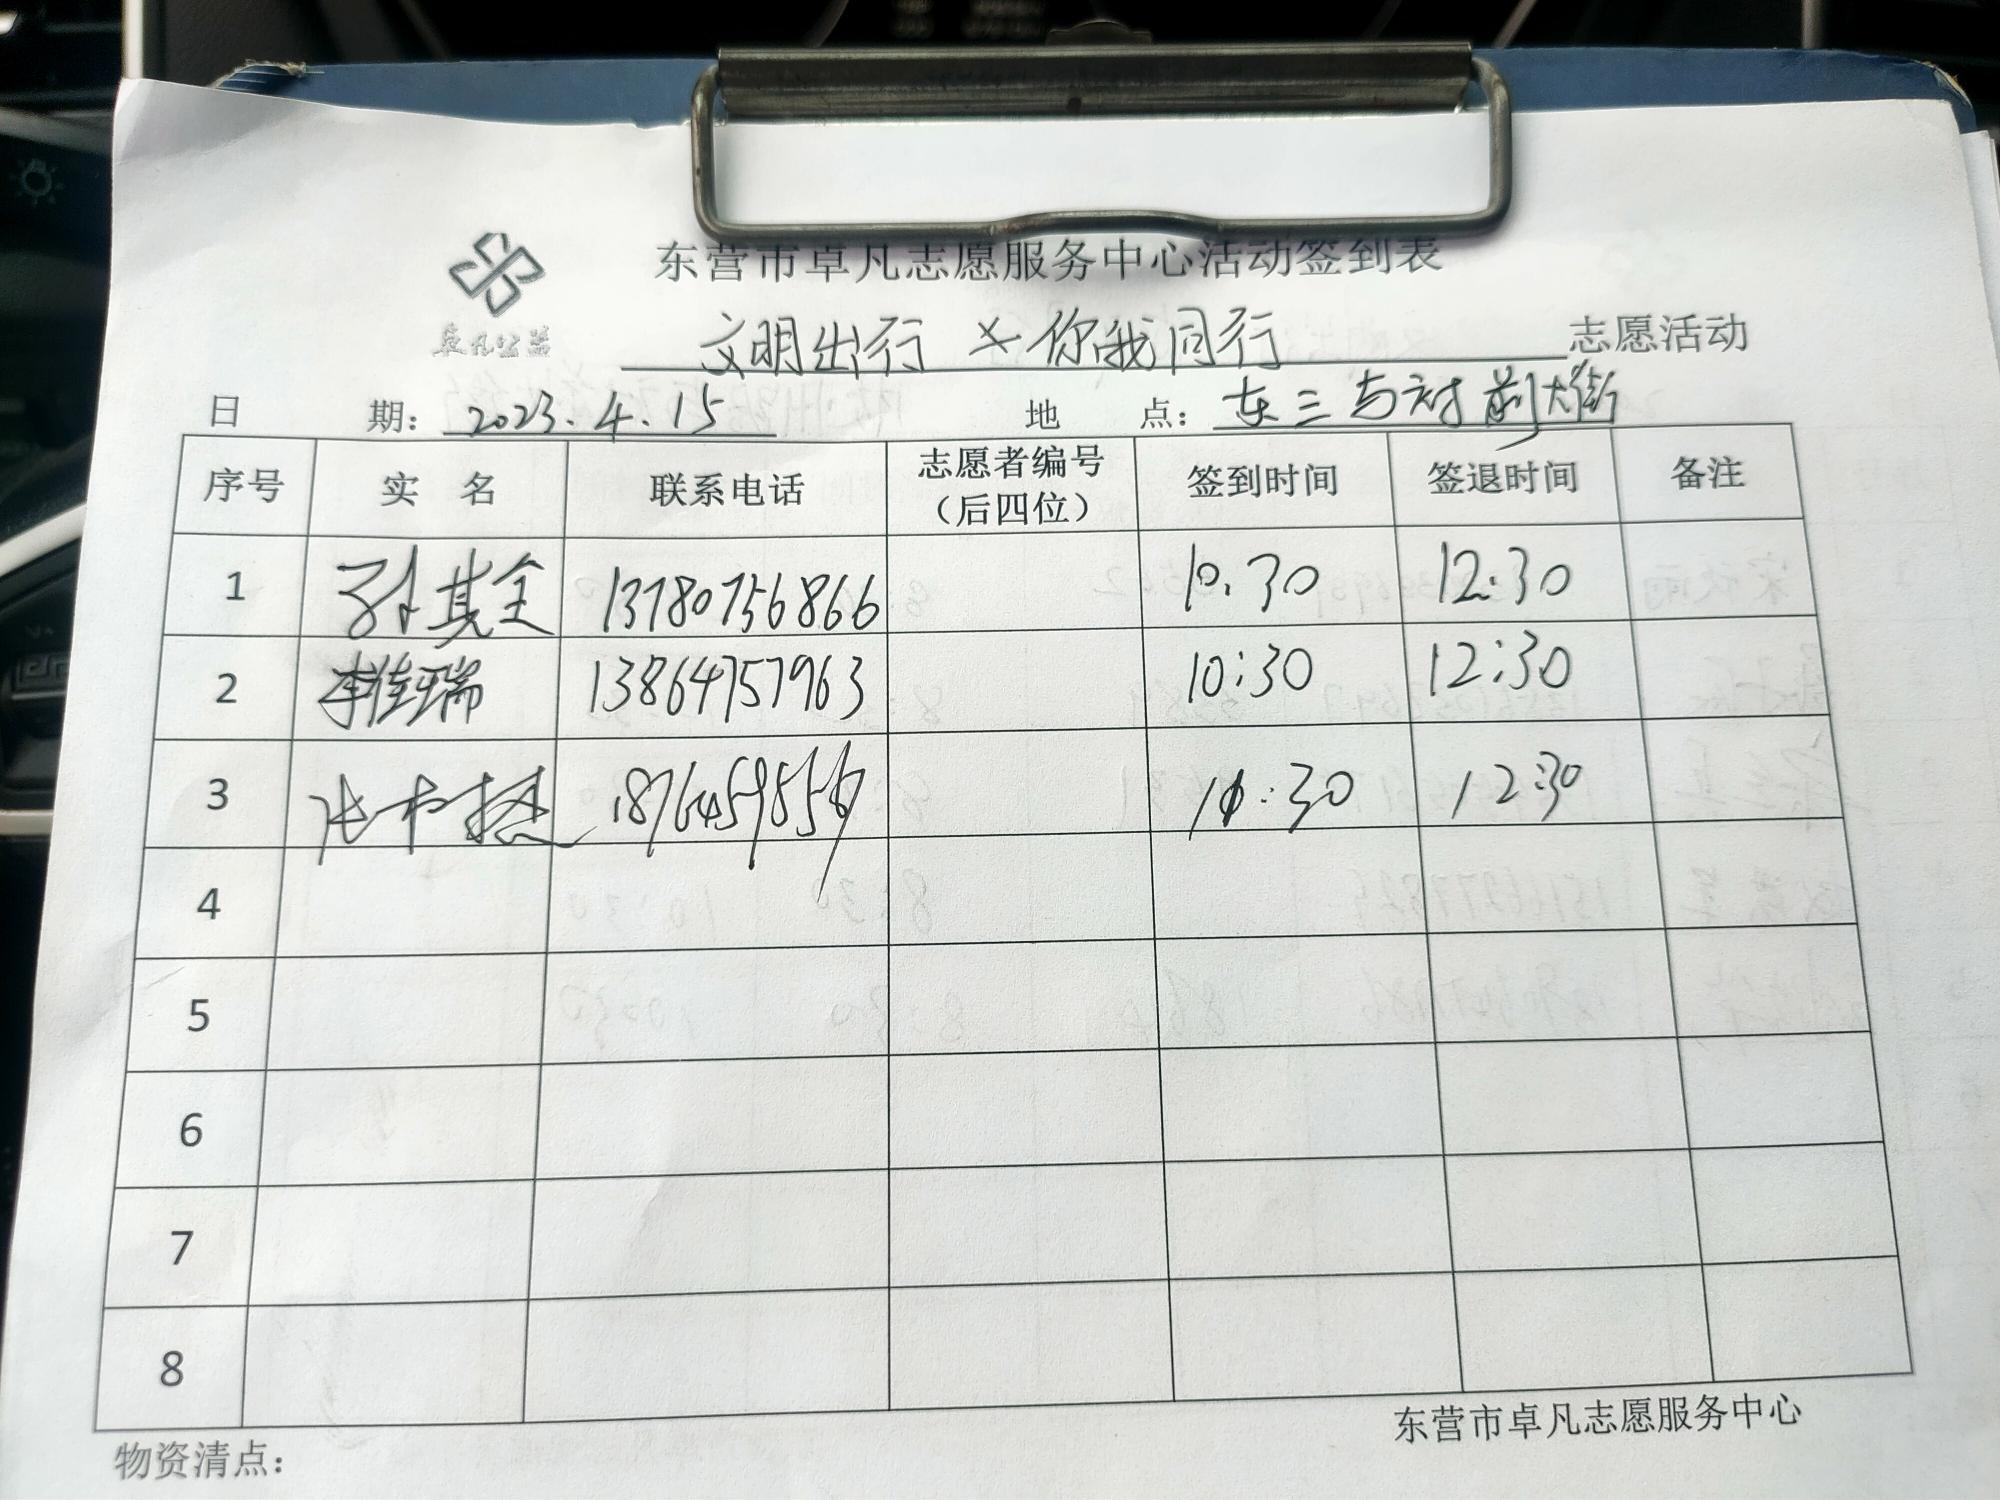 东营市卓凡志愿服务中心活动签到表
卓凡公益
文明出行 × 你我同行 志愿活动
日 期：2023.4.15 地 点：东三与府前大街
序号 实 名 联系电话 志愿者编号（后四位） 签到时间 签退时间 备注
1 孙其全 13780756866 10:30 12:30
2 李佳瑞 13864757963 10:30 12:30
3 10:30 12:30
4
5
6
7
8
东营市卓凡志愿服务中心
物资清点：